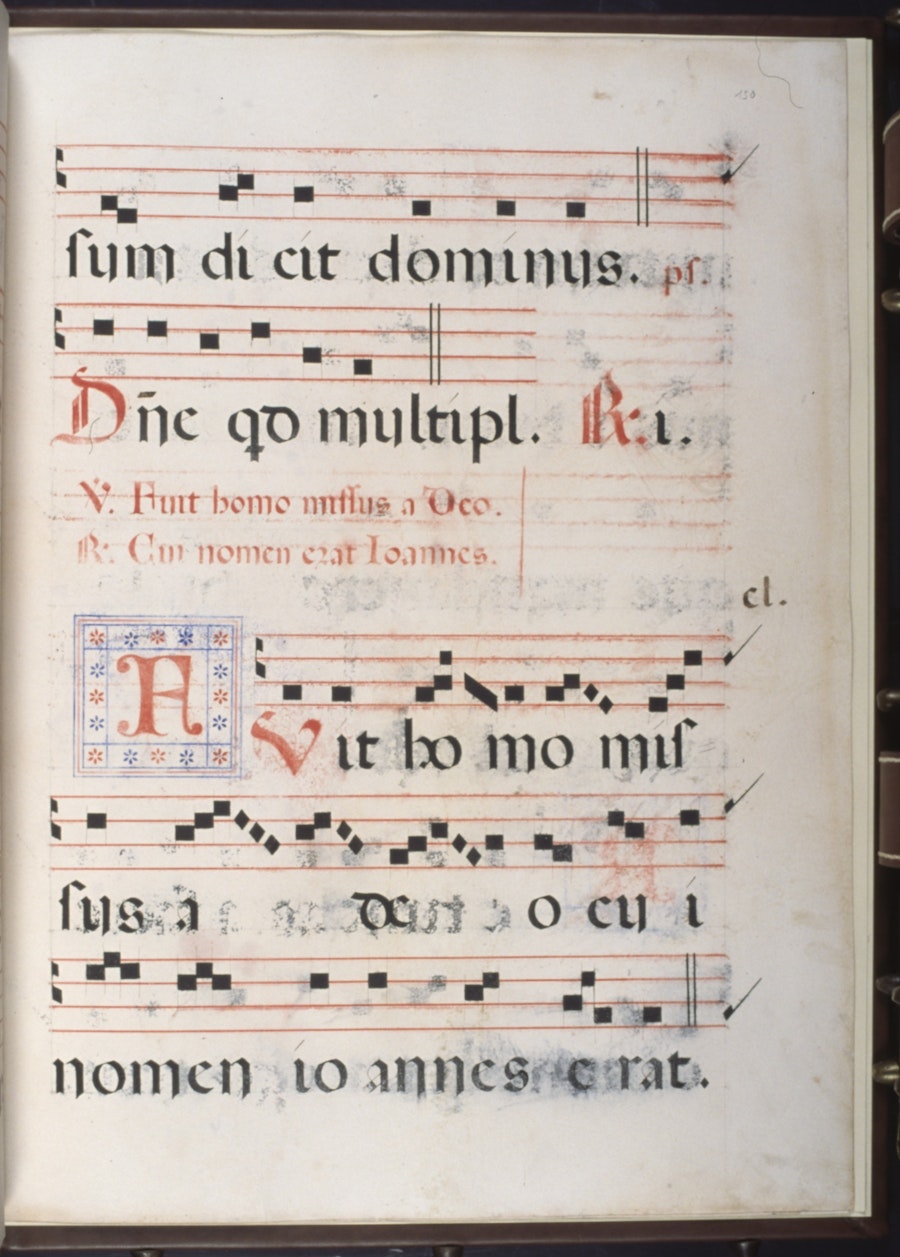 150
ſum di cit dominus. pſ.
Dñe qd multipl. ℟. i.
℣. Fuit homo miſſus a Deo.
℟. Cui nomen erat Ioannes.
cl.
F Vit ho mo miſ
ſus a de o cu i
nomen io annes e rat.